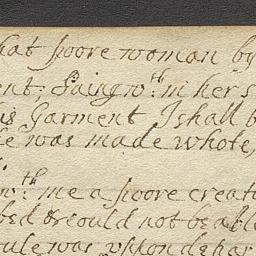 hat poore woman by
ent; Saing wth: in her s
is Garment I shall b
e was made whole,
w:th me a poore creat
bed & could not be able
oule was upon